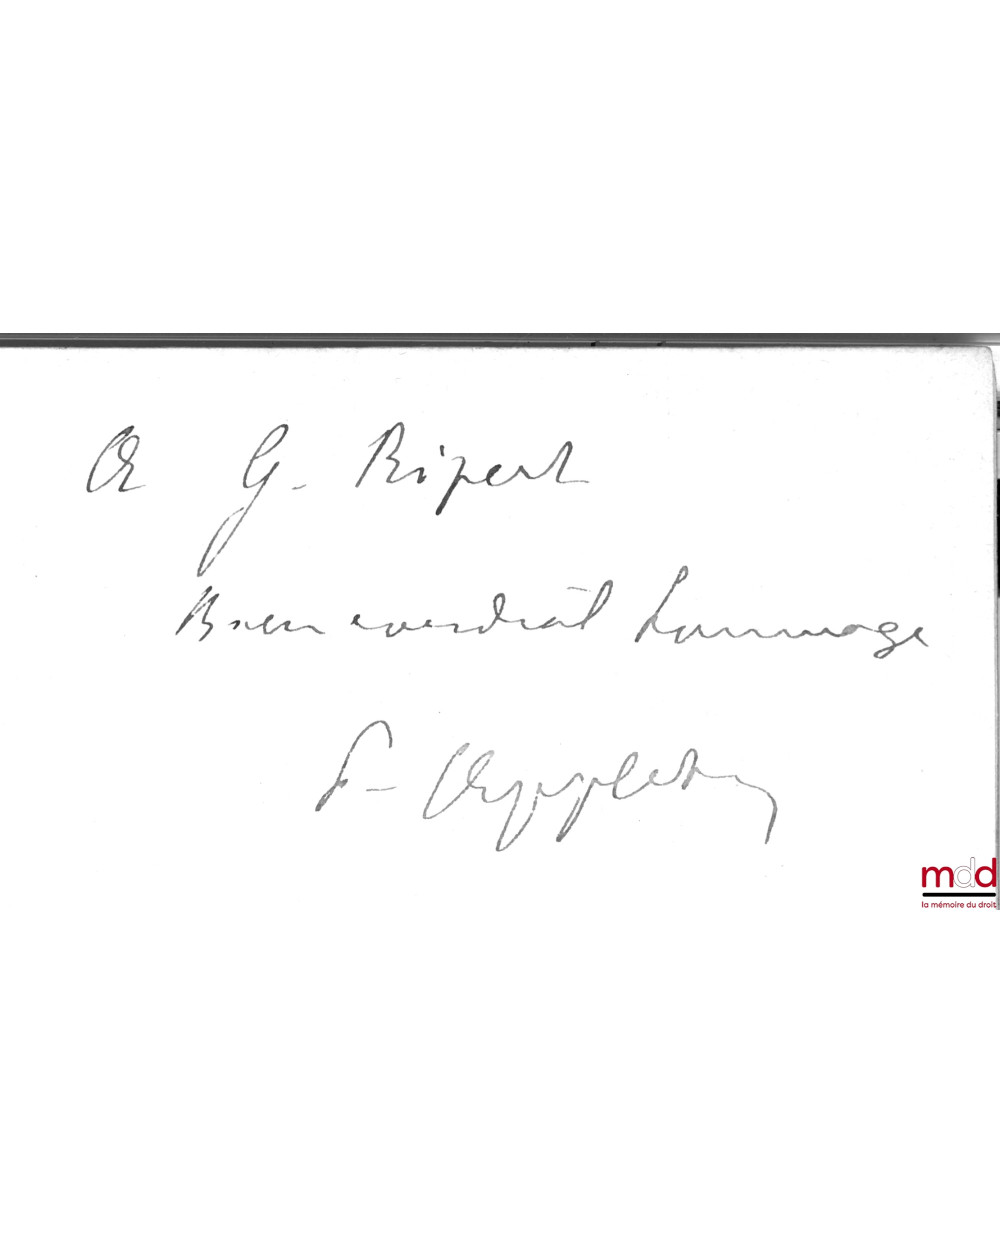 A G. Ripert
Bien cordial hommage
J- Appleton
mdd
la mémoire du droit